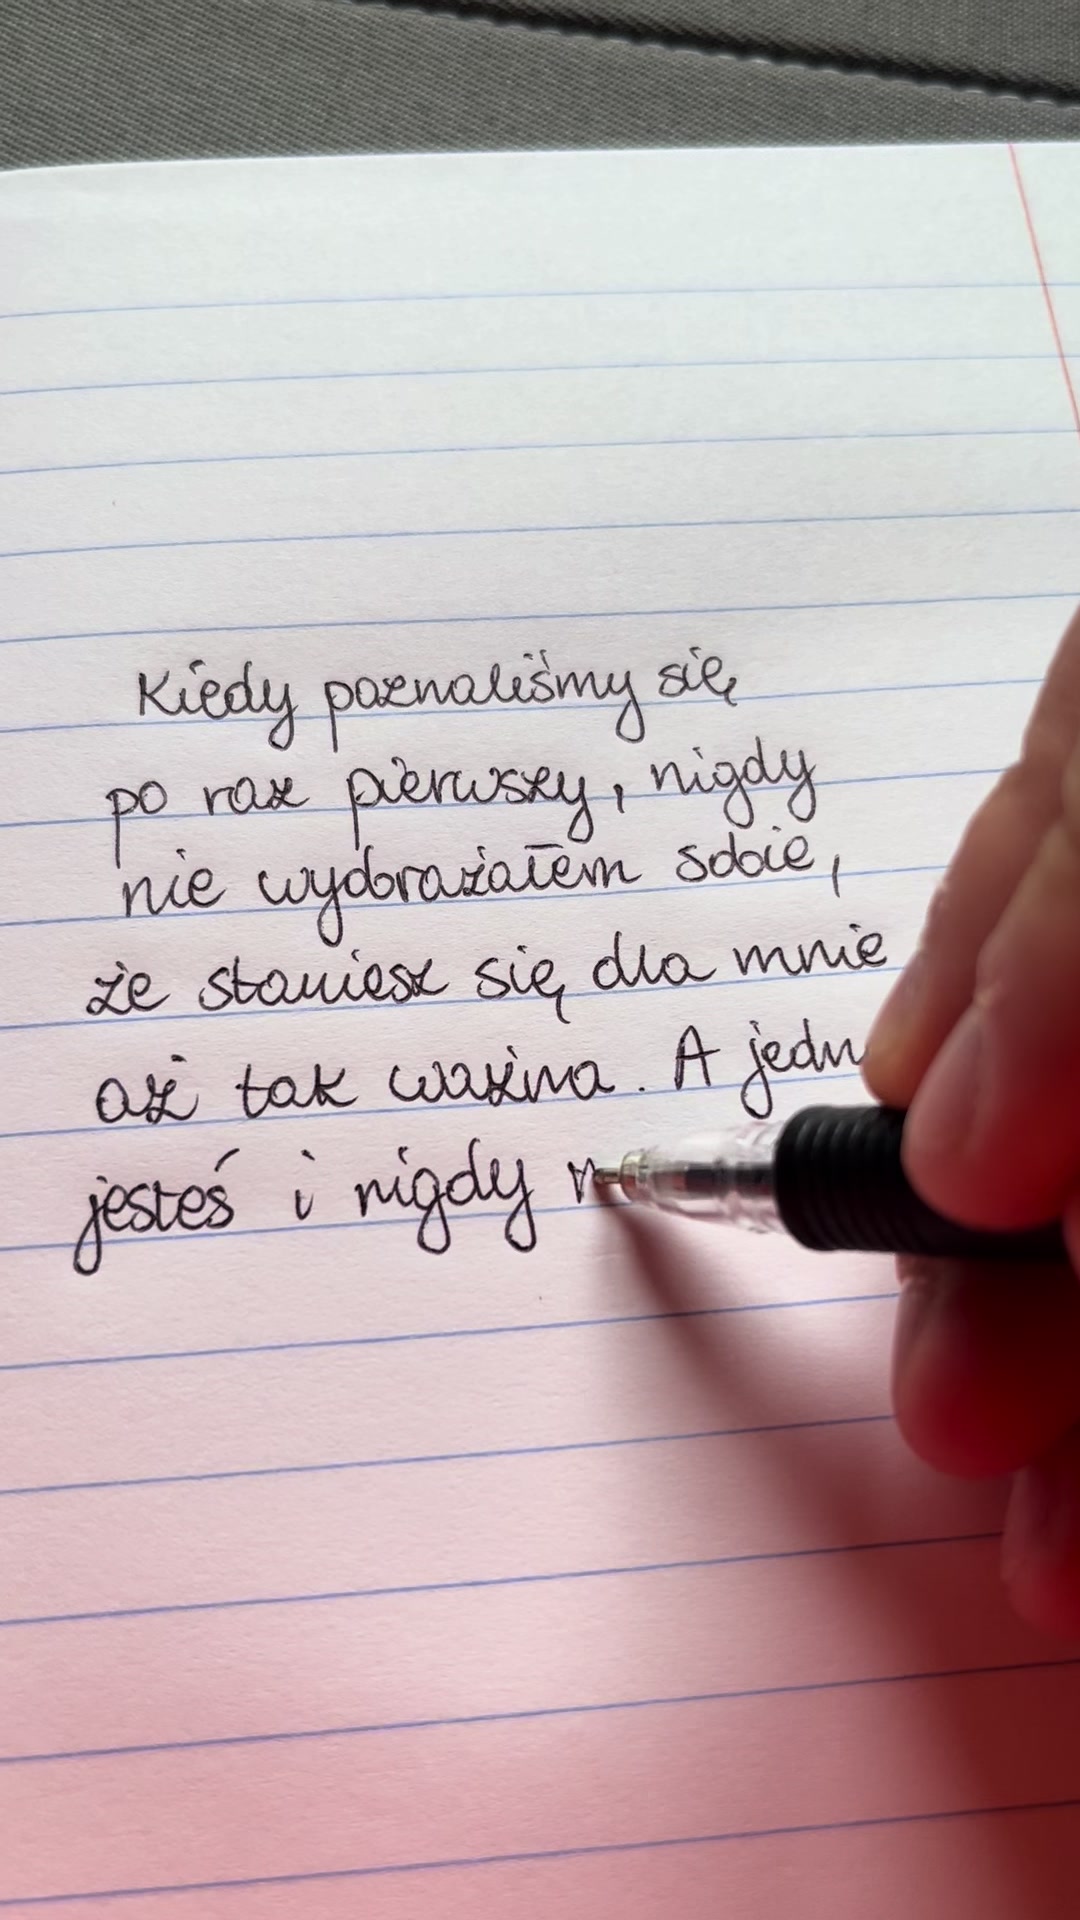 Kiedy poznaliśmy się
po raz pierwszy, nigdy
nie wyobrażałem sobie,
że staniesz się dla mnie
aż tak ważna. A
jesteś i nigdy